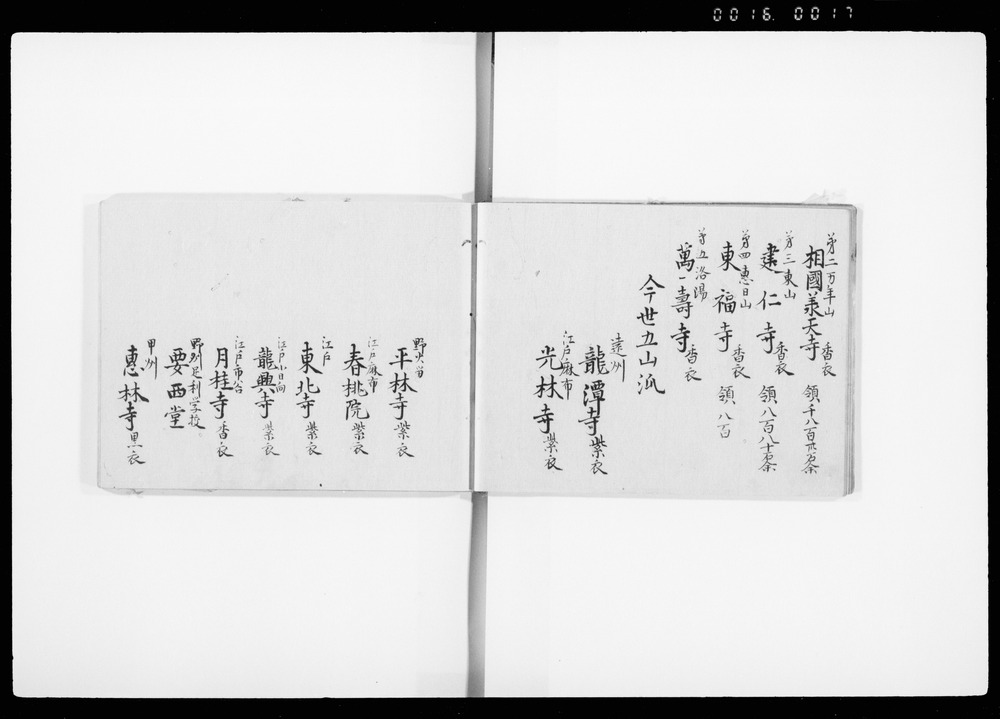 0016. 0017
第二万年山
相國羕天寺 香衣 領千八百
第三東山
建仁寺 香衣 領八百八十
第四惠日山
東福寺 香衣 領八百
第五洛陽
萬壽寺 香衣
今世五山派
遠州
龍潭寺 紫衣
江戸麻布
光林寺 紫衣
野火留
平林寺 紫衣
江戸麻布
春桃院 紫衣
江戸
東北寺 紫衣
江戸小日向
龍興寺 紫衣
江戸市谷
月桂寺 香衣
野州足利学校
要西堂
甲州
惠林寺 黒衣